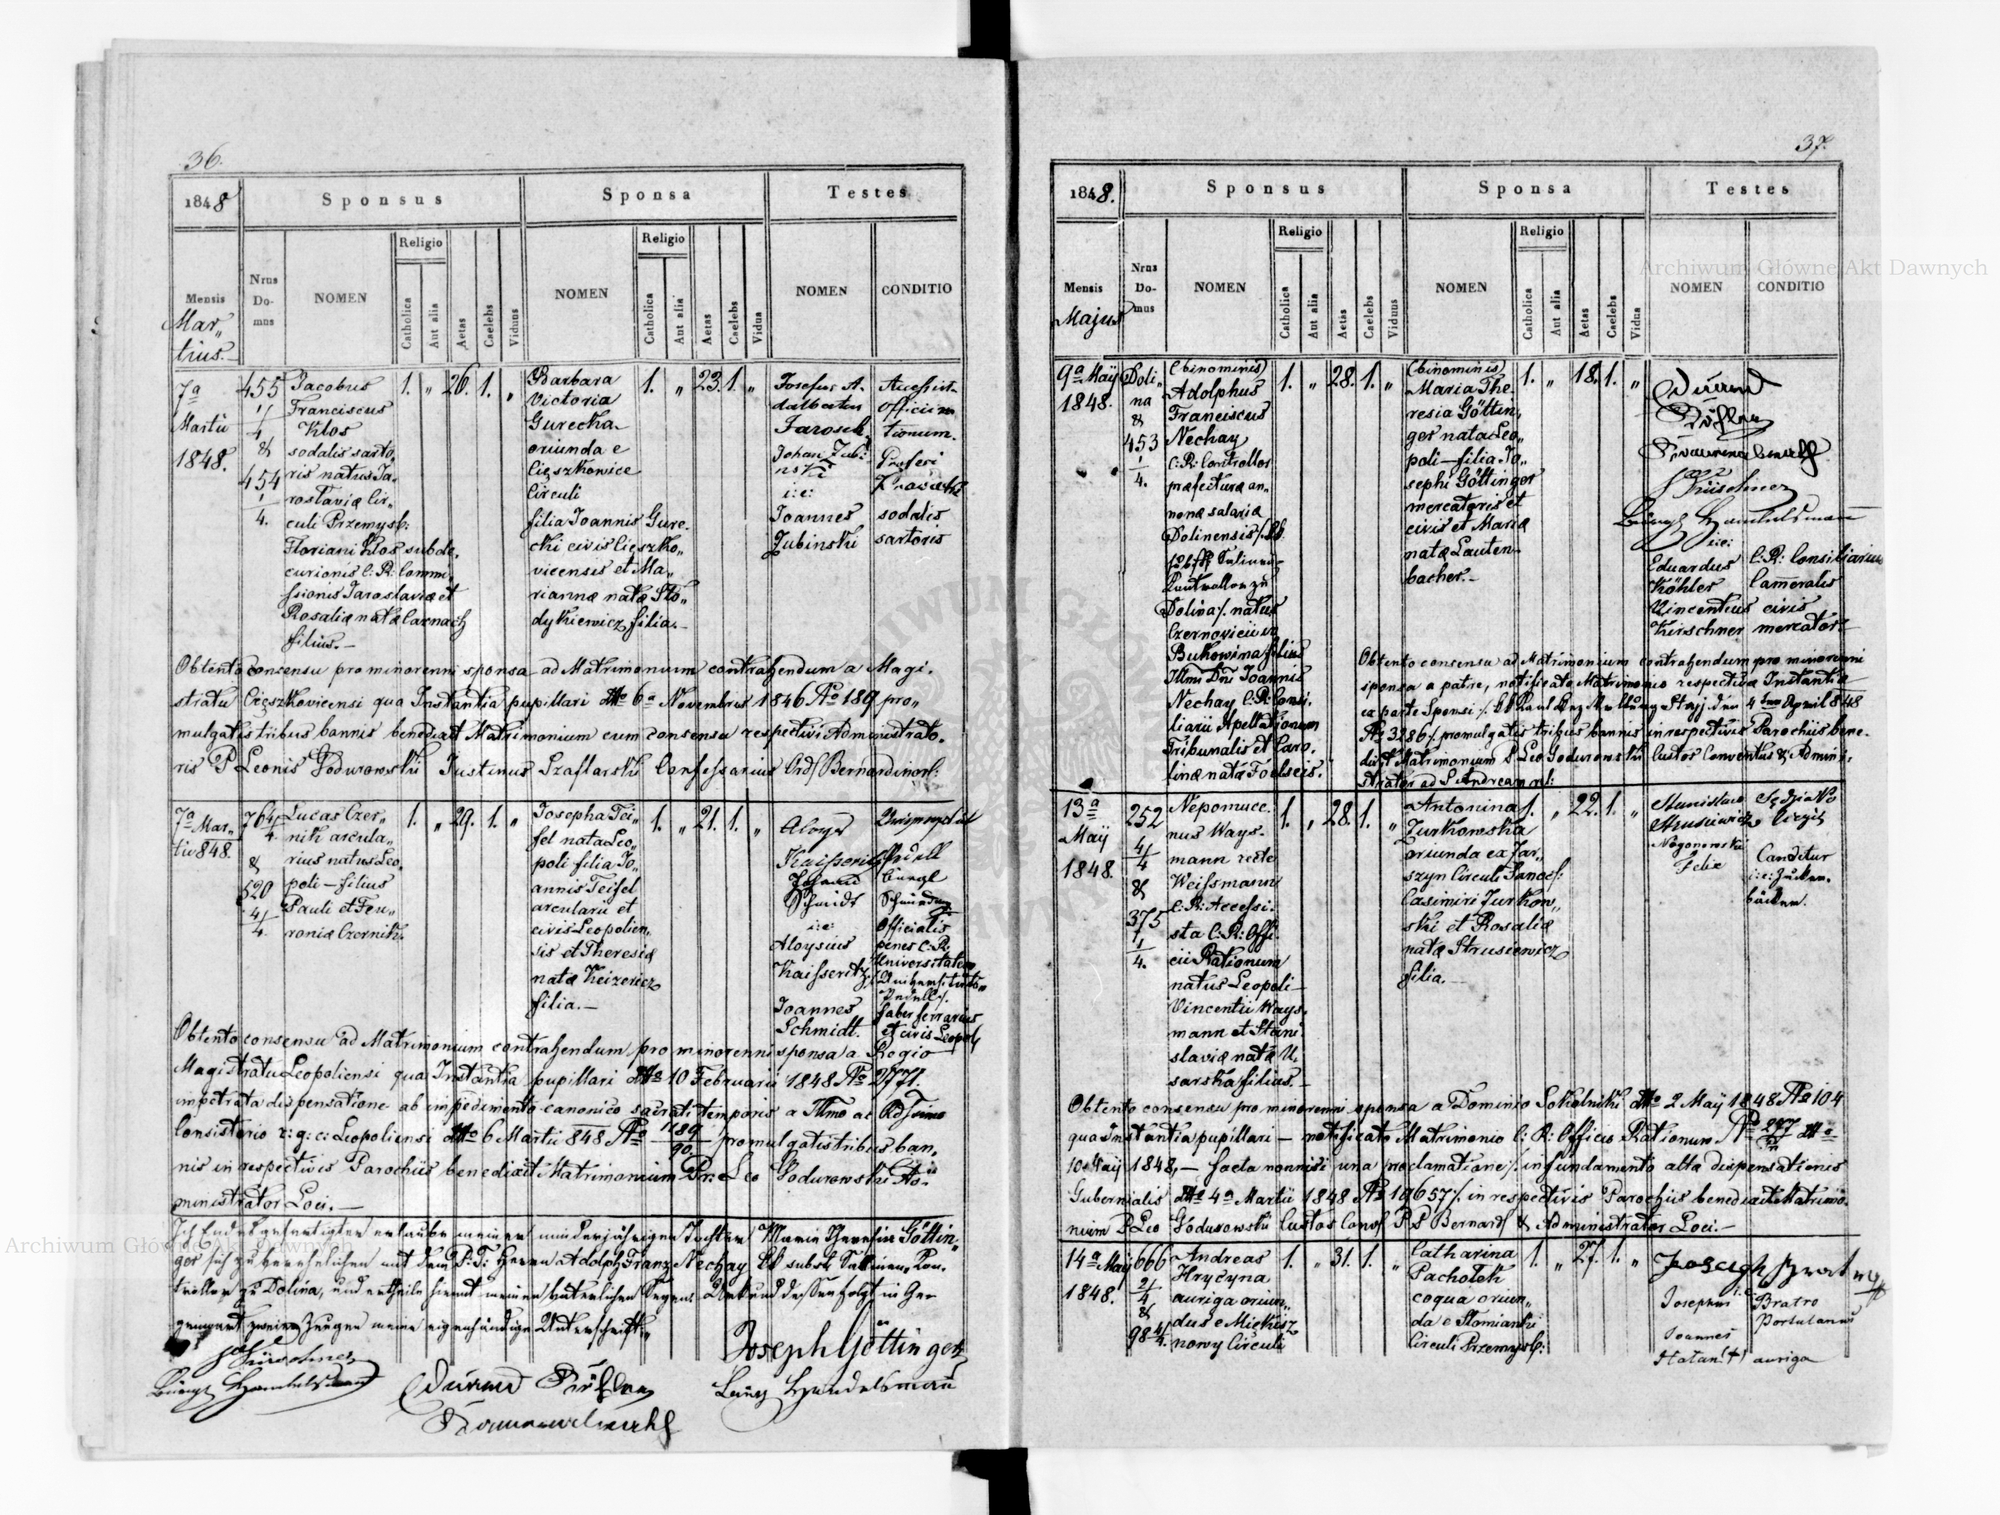 36.
1848
Sponsus
Sponsa
Testes
Mensis
Martius.
Nrus Domus
NOMEN
Religio
Catholica
Aut alia
Aetas
Caelebs
Viduus
NOMEN
Religio
Catholica
Aut alia
Aetas
Caelebs
Vidua
NOMEN
CONDITIO
7a
Martii
1848.
455
1/4
&
454
1/4.
Jacobus
Franciscus
Klos
sodalis sarto,,
ris natus Ja,,
roslaviæ Cir,,
culi Przemysl:
Floriani Klos subde,,
curionis C: R: Commi,,
ssionis Jaroslaviæ et
Rosaliæ natæ Czernach
filius.–
1. „ 26. 1. „
Barbara
Victoria
Gurecka
oriunda e
Cięszkowice
Circuli
filia Joannis Gure,,
cki civis Cięszko,,
vicensis et Ma,,
riannæ natæ Sto,,
dykiewicz filia.–
1. „ 23. 1. „
Josefus A,,
dalbertus
Jarosch
Johan Zubi
nski
i:e:
Joannes
Zubinski
sodalis
sartoris
Obtento consensu pro minorenni sponsa ad Matrimonium contrahendum a Magi,,
stratu Cięszkovicensi qua Instantia pupillari dto 6a Novembris 1846 No 189 pro,,
mulgatis tribus bannis benedixit Matrimonium cum consensu respectivi Administrato,,
ris P Leonis Godurowski Justinus Szaflarski Confessarius Ord/ Bernardinor/:
7a Mar,,
tii 848.
764
4/4.
&
520
4/4.
Lucas Czer,,
nik arcula,,
rius natus Leo,,
poli – filius
Pauli et Feu,,
roniæ Czernik.
1. „ 29. 1. „
Josepha Tei,,
fel nata Leo,,
poli filia Jo,,
annis Teifel
arcularii et
civis Leopolien,,
sis et Theresiæ
natæ Keizericz
filia.–
1. „ 21. 1. „
Aloys
Kaisseritz
Johann
Schmidt
i:e:
Aloysius
Kaisseritz
Joannes
Schmidt.
Pedell
Bürgl
Officialis
penes C: R:
Universitatem
faber ferrarius
et civis Leopol/
Obtento consensu ad Matrimonium contrahendum, pro minorenni sponsa a Regio
Magistratu Leopoliensi qua Instantia pupillari dto 10 Februarii 1848 No 2771.
impetrata dispensatione ab impedimento canonico sacrati temporis a Illmo ac Rdssimo
Consistorio r: g: c: Leopoliensi dto 6 Martii 848 No 1189/90. promulgatis tribus ban,,
nis in respectivis Parochiis benedixit Matrimonium Pr: Leo Godurowski Ad,,
ministrator Loci.–
Ich Endesgefertigter erlaube meiner minderjährigen Tochter Marie Theresie Göttin,,
ger sich zu verehelichen mit dem P: T: Herrn Adolph Franz Nechay kk subst: Sallinen Kon,,
trollor zu Dolina, und ertheile hiemit meinen väterlichen Segen. Urkund dessen folgt in Ge,,
genwart zweier Zeugen meine eigenhändige Unterschrift.
Joseph Göttinger
Bürgl Handelsmann
Bürgl Handelsmann
37.
1848.
Sponsus
Sponsa
Testes
Mensis
Majus
Nrus Domus
NOMEN
Religio
Catholica
Aut alia
Aetas
Caelebs
Viduus
NOMEN
Religio
Catholica
Aut alia
Aetas
Caelebs
Vidua
NOMEN
CONDITIO
9a Maÿ
1848.
Doli,,
na
&
453
1/4.
(binominis)
Adolphus
Franciscus
Nechay
C: R: Controllor
præfecturæ an,,
nonæ salariæ
Dolinensis /: kk
subst: Salinen
Kontrollor zu
Dolina /: natus
Czernovicii in
Bukowina filius
Illmi Dni Joannis
Nechay C: R: Consi,,
liarii Apellationum
Tribunalis et Caro,,
linæ natæ Foelseis.
1. „ 28. 1. „
(binominis)
Maria The,,
resia Göttin,,
ger nata Leo,,
poli – filia Jo,,
sephi Göttinger
mercatoris et
civis et Mariæ
natæ Lauten,,
bacher.–
1. „ 18. 1. „
Bürgl Handelsmann
i:e:
Eduardus
Köhler
Vincentius
Kirschner
C: R: Consiliarius
Cameralis
civis
mercator
Obtento consensu ad Matrimonium contrahendum pro minorenni
sponsa a patre, notificato Matrimonio respectivæ Instantiæ
ex parte Sponsi
No 3286 /: promulgatis tribus bannis in respectivis Parochiis bene,,
dixit Matrimonium P Leo Godurowski Custos Conventus & Admini,,
strator ad S Andream m/:
13a
Maÿ
1848.
252
4/4
&
375
1/4.
Nepomuce,,
nus Ways,,
mann recte
Weissmann
C: R: Accessi,,
sta C: R: Offi,,
cii Rationum
natus Leopoli
Vincentii Ways,,
mann et Stani,,
slaviæ natæ U,,
sarska filius.–
1. „ 28. 1. „
Antonina
Zurkowska
oriunda ex Jar,,
szyn Circuli Sanoc/:
Casimiri Zurkow,,
ski et Rosaliæ
natæ Strusiewicz
filia.–
1. „ 22. 1. „
Stanislaw
Strusiewicz
Nogonowski
Felix
Canditur
i:e: Zucken,,
bäcken.
Obtento consensu pro minorenni sponsa a Dominio Sokolniki dto 2 Maÿ 1848 No 104
qua Instantia pupillari – notificato Matrimonio C: R: Officio Rationum No 277 dto
10 Maÿ 1848, – facta nonnisi una proclamatione /: in fundamento altæ dispensationis
Gubernialis dto 4a Martii 1848 No 19657 /: in respectivis Parochiis benedixit Matrimo,,
nium P Leo Godurowski Custos Conv/ PP Bernard/ & Administrator Loci.–
14a Maÿ
1848.
666
2/4
&
98 4/4.
Andreas
Hrycyna
auriga oriun,,
dus e Miekisz
nowy Circuli
1. „ 31. 1. „
Catharina
Pacholek
coqua oriun,,
da e Stomianki
Circuli Przemysl:
1. „ 27. 1. „
i:e:
Josephus
Joannes
Bratro
Portulanus
auriga
Archiwum Główne Akt Dawnych
Archiwum Główne Akt Dawnych